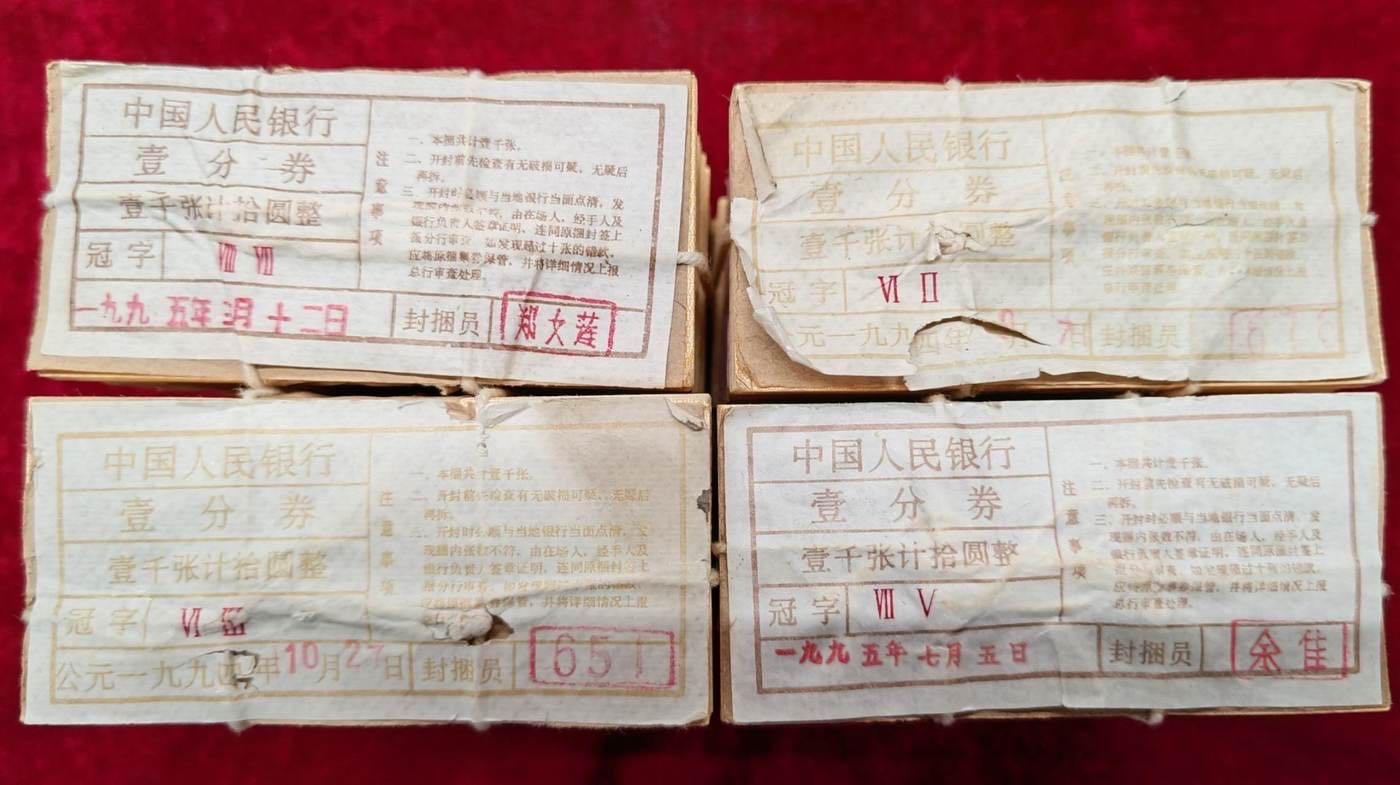 中国人民银行
壹分券
壹千张计拾圆整
冠字 Ⅷ Ⅶ
一九九五年 月十二日
封捆员 郑文莲
注意事项
一、本捆共计壹千张。
二、开封前先检查有无破损可疑，无疑后
再拆。
三、开封时必顺与当地银行当面点清，发
现捆内张数不符，由在场人、经手人及
银行负责人签章证明，连同原捆封签上
报分行审查，如发现超过十张的错款，
应将原捆票券保管，并将详细情况上报
总行审查处理。
中国人民银行
壹分券
壹千张计拾圆整
冠字 Ⅵ Ⅱ
元一九九 年 月7日
封捆员
注意事项
一、本捆共计壹千张。
二、开封前先检查有无破损可疑，无疑后
再拆。
三、开封时必顺与当地银行当面点清，发
现捆内张数不符，由在场人、经手人及
银行负责人签章证明，连同原捆封签上
中国人民银行
壹分券
壹千张计拾圆整
冠字 Ⅵ
公元一九九四年10月27日
封捆员 651
注意事项
一、本捆共计壹千张。
二、开封前先检查有无破损可疑，无疑后
再拆。
三、开封时必顺与当地银行当面点清，发
现捆内张数不符，由在场人、经手人及
银行负责人签章证明，连同原捆封签上
报分行审查，如发现
保管，并将详细情况上报
中国人民银行
壹分券
壹千张计拾圆整
冠字 Ⅶ Ⅴ
一九九五年七月五日
封捆员 余佳
注意事项
一、本捆共计壹千张。
二、开封前先检查有无破损可疑，无疑后
再拆。
三、开封时必顺与当地银行当面点清，发
现捆内张数不符，由在场人、经手人及
银行负责人签章证明，连同原捆封签上
报分行审查，如发现超过十张的错款，
应将原捆票券保管，并将详细情况上报
总行审查处理。